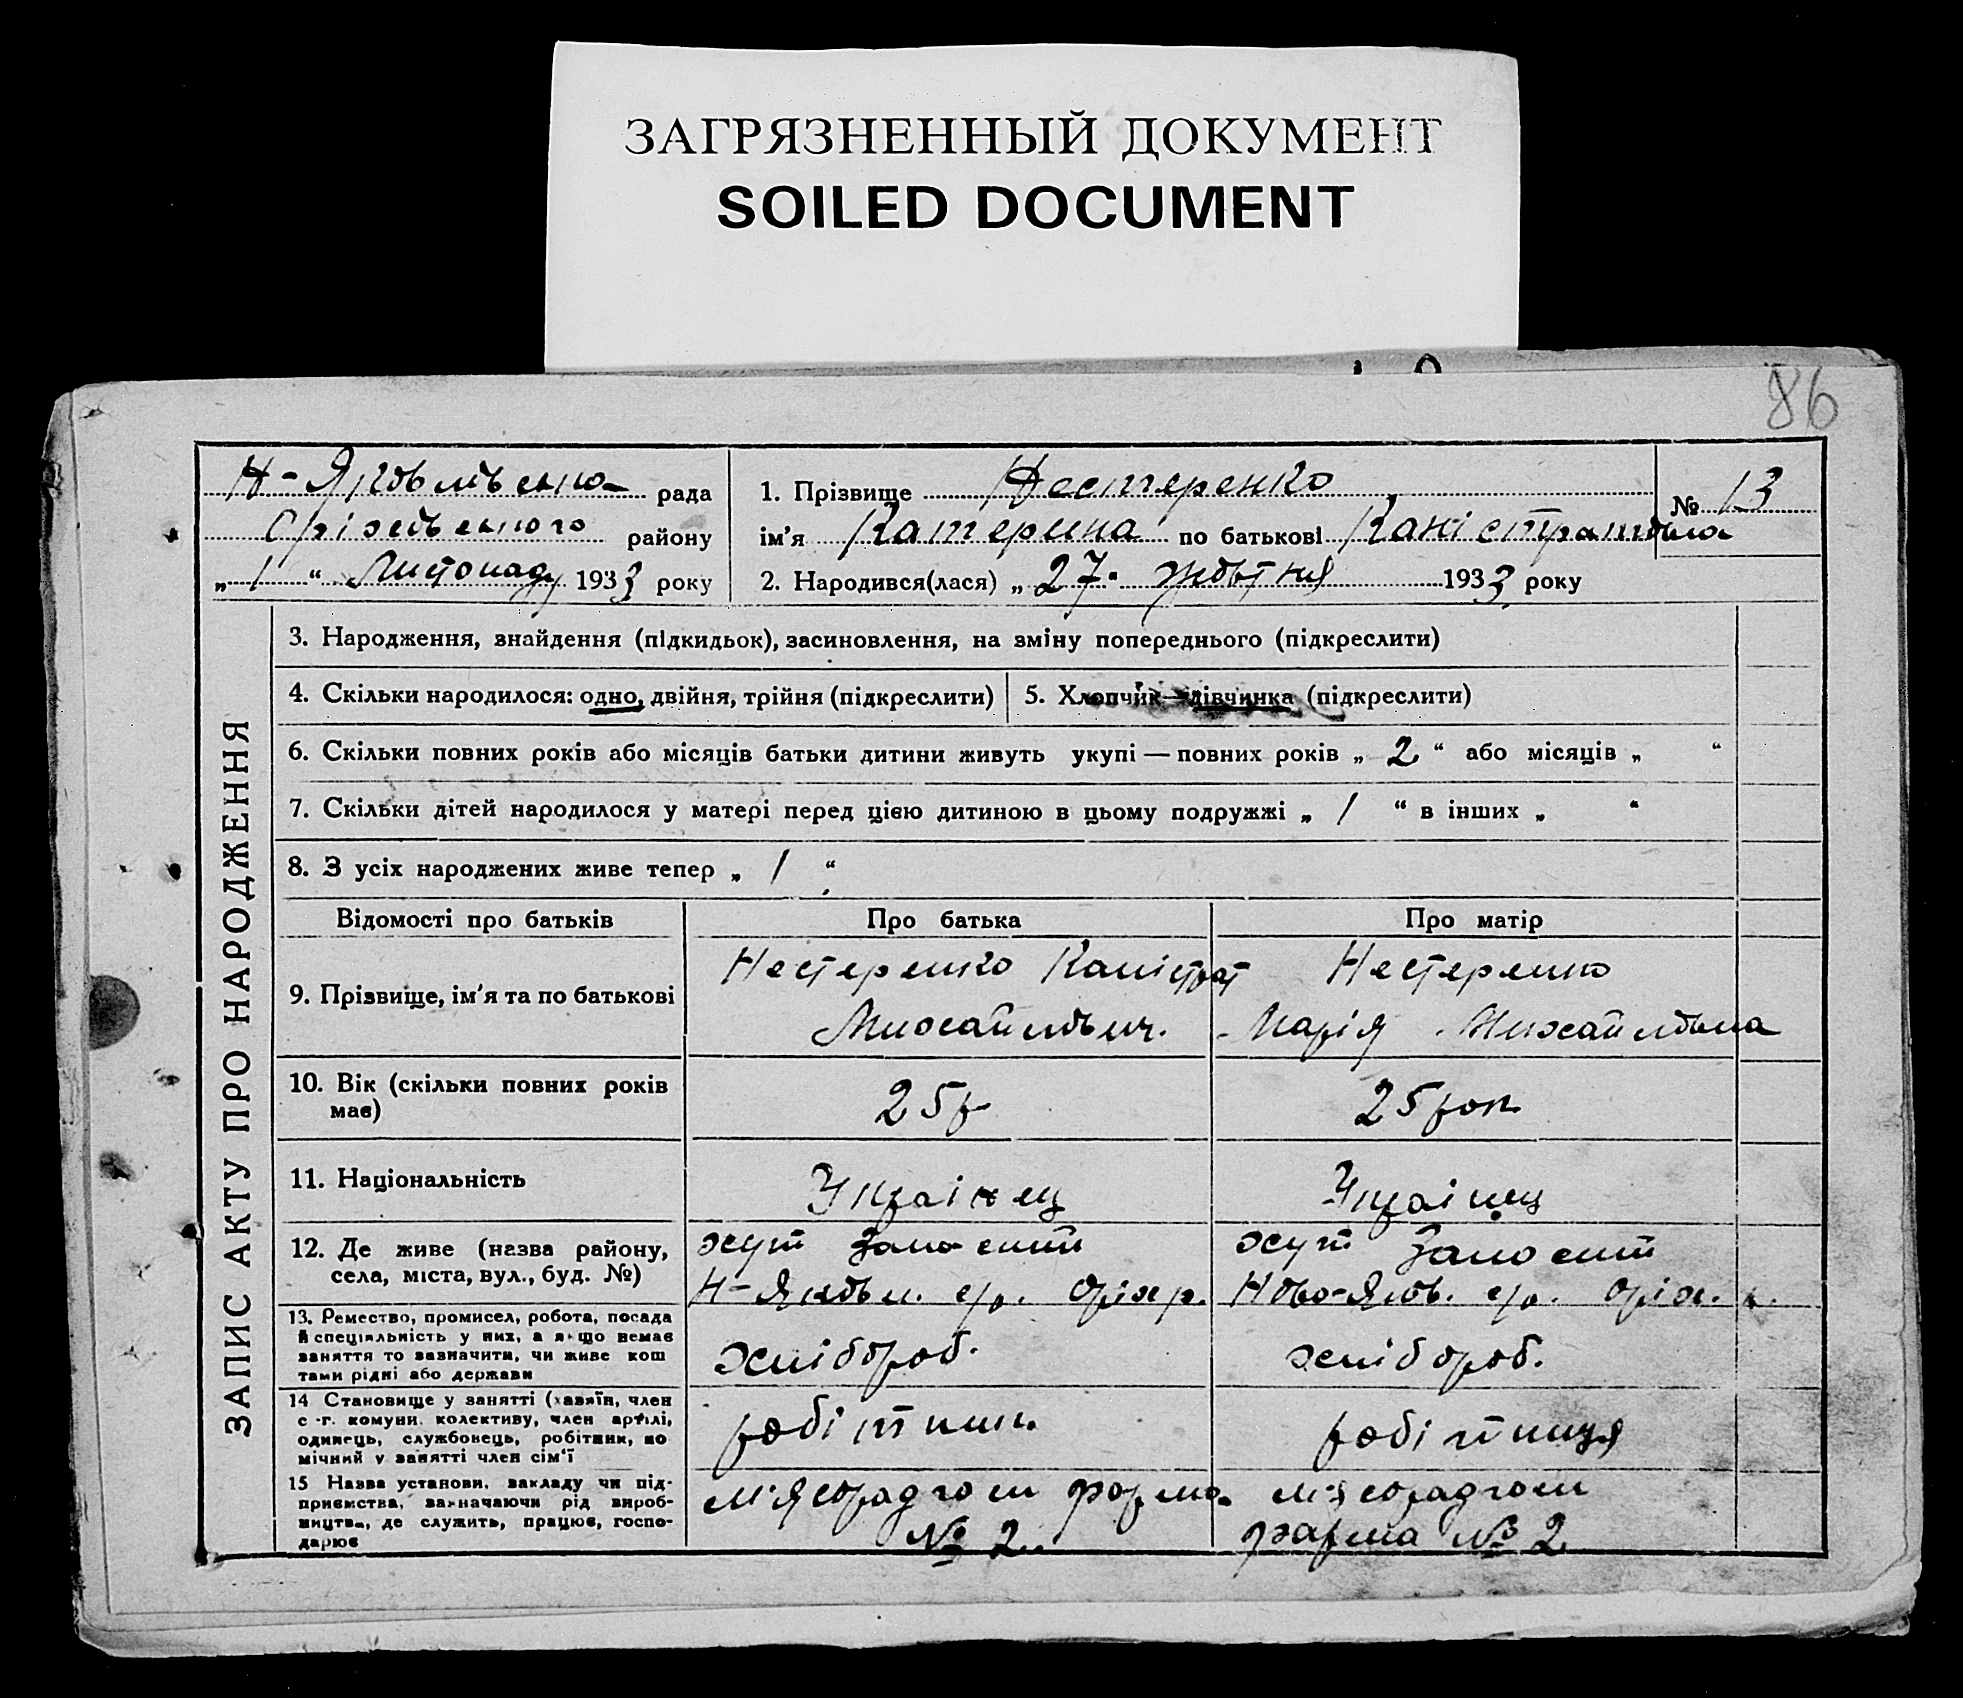 ЗАГРЯЗНЕННЫЙ ДОКУМЕНТ
SOILED DOCUMENT
86
Н-Яковлівська рада
Оріхівського району
„ 1 “ Листопаду 1933 року
1. Прізвище Нестеренко
№ 13
ім'я Катерина по батькові Каністратовна
2. Народився(лася) „ 27 " Жовтня 1933 року
ЗАПИС АКТУ ПРО НАРОДЖЕННЯ
3. Народження, знайдення (підкидьок), засиновлення, на зміну попереднього (підкреслити)
4. Скільки народилося: одно, двійня, трійня (підкреслити)
5. Хлопчик—дівчинка (підкреслити)
6. Скільки повних років або місяців батьки дитини живуть укупі — повних років „ 2 “ або місяців „ “
7. Скільки дітей народилося у матері перед цією дитиною в цьому подружжі „ 1 “ в інших „ “
8. З усіх народжених живе тепер „ 1 “
Відомості про батьків
Про батька
Про матір
9. Прізвище, ім'я та по батькові
Нестеренко Каністрат
Михайлович.
Нестеренко
Марія Михайловна
10. Вік (скільки повних років
має)
25 р
25 рок
11. Національність
Украінец
Украінец
12. Де живе (назва району,
села, міста, вул., буд. №)
хут
Н-Яковл. с/р. Оріх р.
хут
Ново-Яков. с/р. Оріх. р.
13. Ремество, промисел, робота, посада
й спеціяльність у них, а якщо немає
заняття то зазначити, чи живе кош
тами рідні або держави
хлібороб.
хлібороб.
14 Становище у занятті (хазяїн, член
с.-г. комуни, колективу, член артілі,
одинець, службовець, робітник, по
мічний у занятті член сім'ї
робітник.
робітниця
15 Назва установи, закладу чи під-
приємства, зазначаючи рід вироб-
ництва, де служить, працює, госпо-
дарює
м'ясорадгосп ферма
№ 2.
м'ясорадгосп
фарма № 2